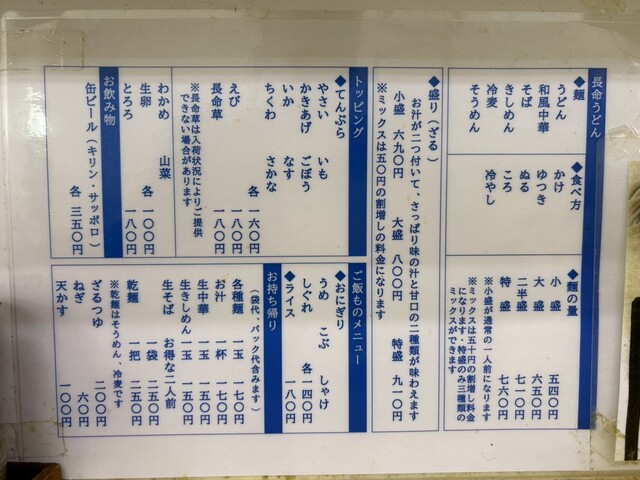 長命うどん
◆麺
うどん
和風中華
そば
きしめん
冷麦
そうめん
◆食べ方
かけ
ゆつき
ぬる
ころ
冷やし
◆麺の量
小盛 五四〇円
大盛 六五〇円
二半盛 七一〇円
特盛 七六〇円
※小盛が通常の一人前になります
※ミックスは五十円の割増し料金
になります・特盛のみ三種類の
ミックスができます
◆盛り（ざる）
お汁が二つ付いて、さっぱり味の汁と甘口の二種類が味わえます
小盛 六九〇円 大盛 八〇〇円 特盛 九一〇円
※ミックスは五〇円の割増しの料金になります
トッピング
◆てんぷら
やさい いも
かきあげ ごぼう
いか なす
ちくわ さかな
各 一六〇円
えび 一八〇円
長命草 一八〇円
※長命草は入荷状況によりご提供
できない場合があります
わかめ 山菜
生卵 各 一〇〇円
とろろ 一八〇円
お飲み物
缶ビール（キリン・サッポロ）
各 三五〇円
ご飯ものメニュー
◆おにぎり
うめ こぶ しゃけ
しぐれ 各一四〇円
◆ライス 一八〇円
お持ち帰り
（袋代・パック代含みます）
各種麺 一玉 一七〇円
お汁 一杯 一七〇円
生中華 一玉 一五〇円
生きしめん 一玉 一五〇円
生そば お得な二人前
一袋 二五〇円
乾麺 一把 二五〇円
※乾麺はそうめん、冷麦です
ざるつゆ 二〇〇円
ねぎ 六〇円
天かす 一〇〇円